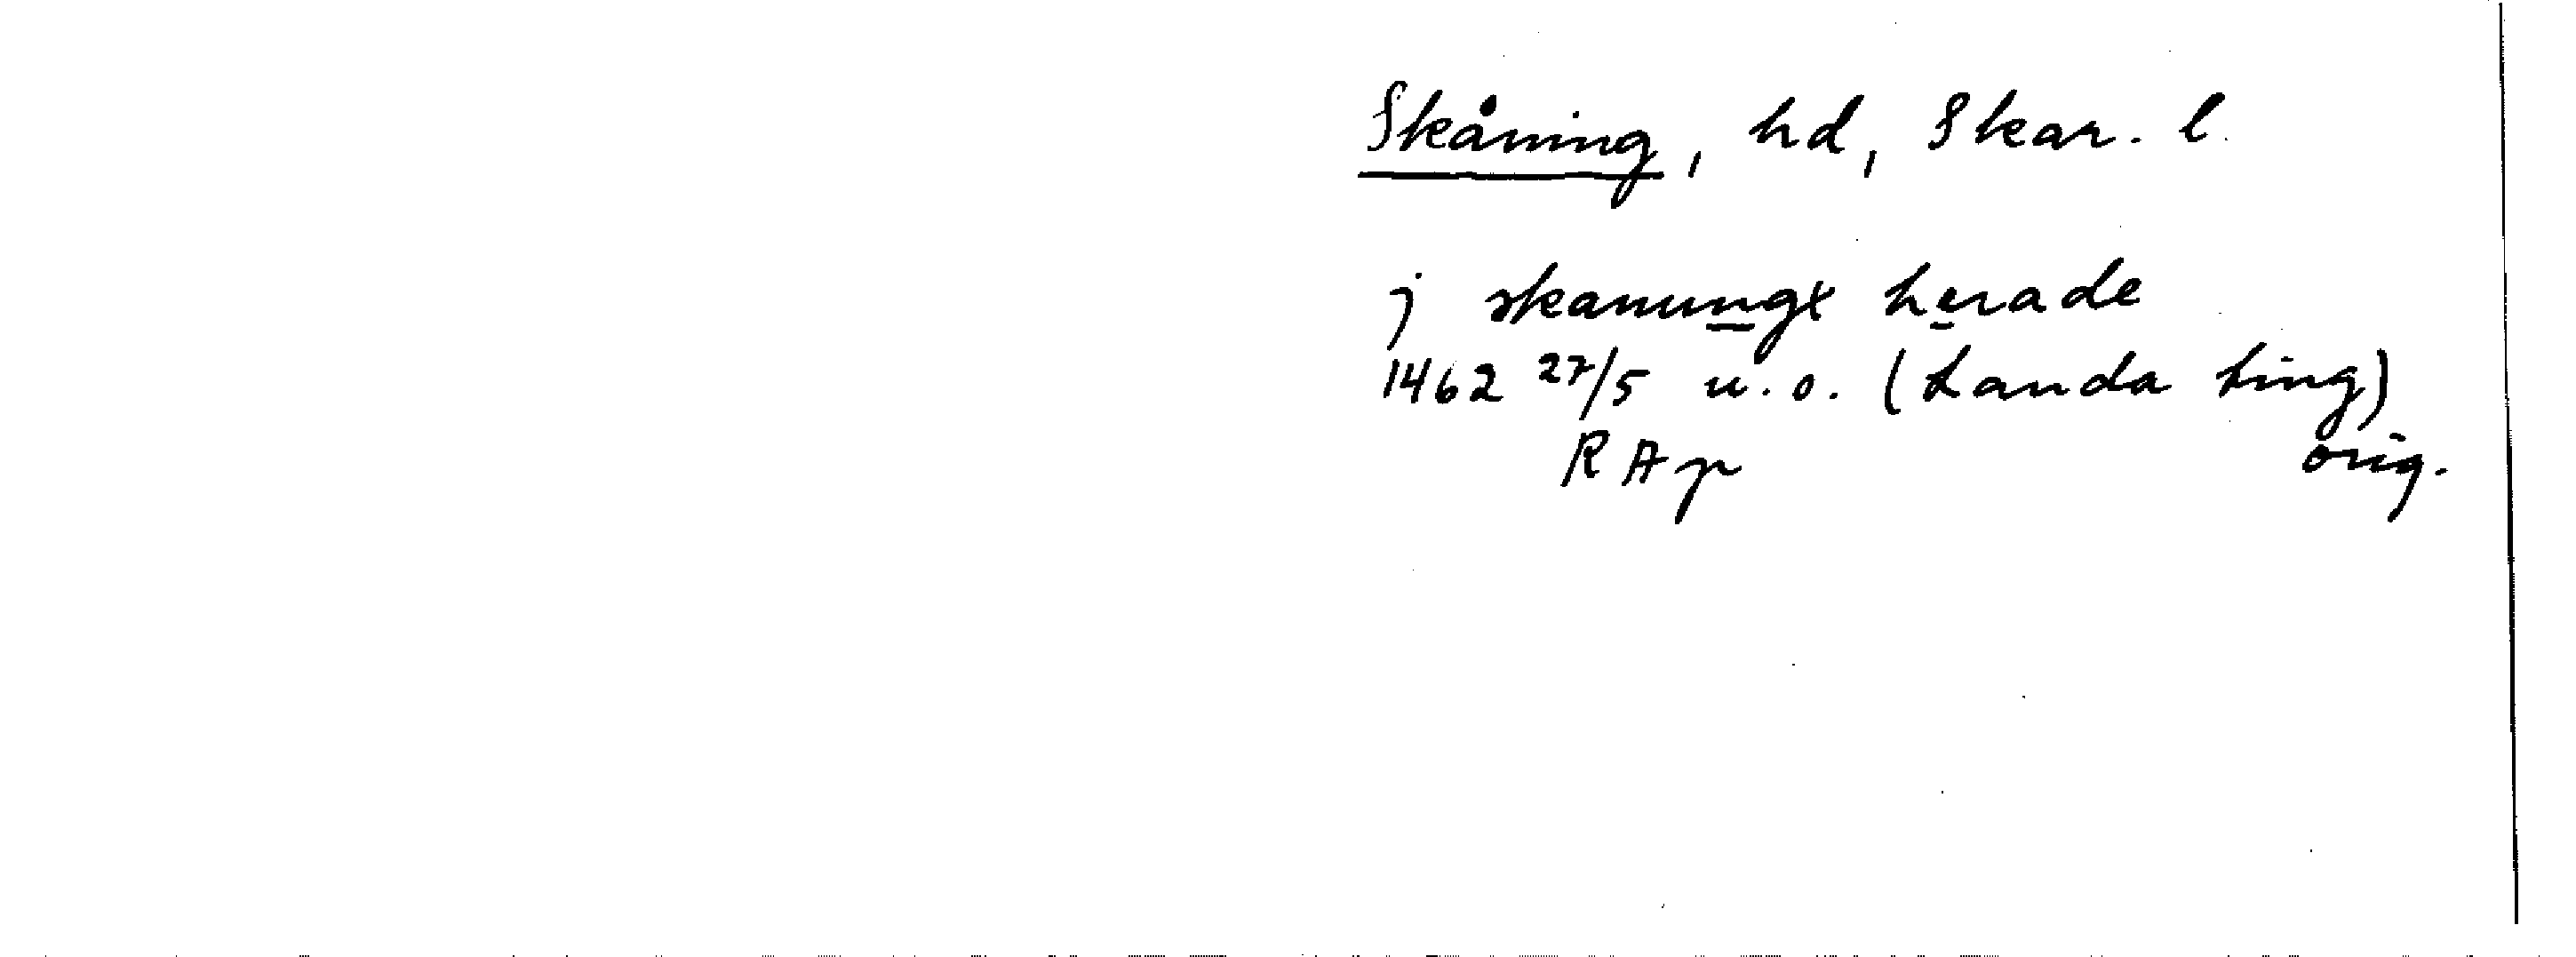 Skåning, hd, Skar. l.
j skanungx herade
1462 27/5 u.o. (Landa ting)
RAp orig.